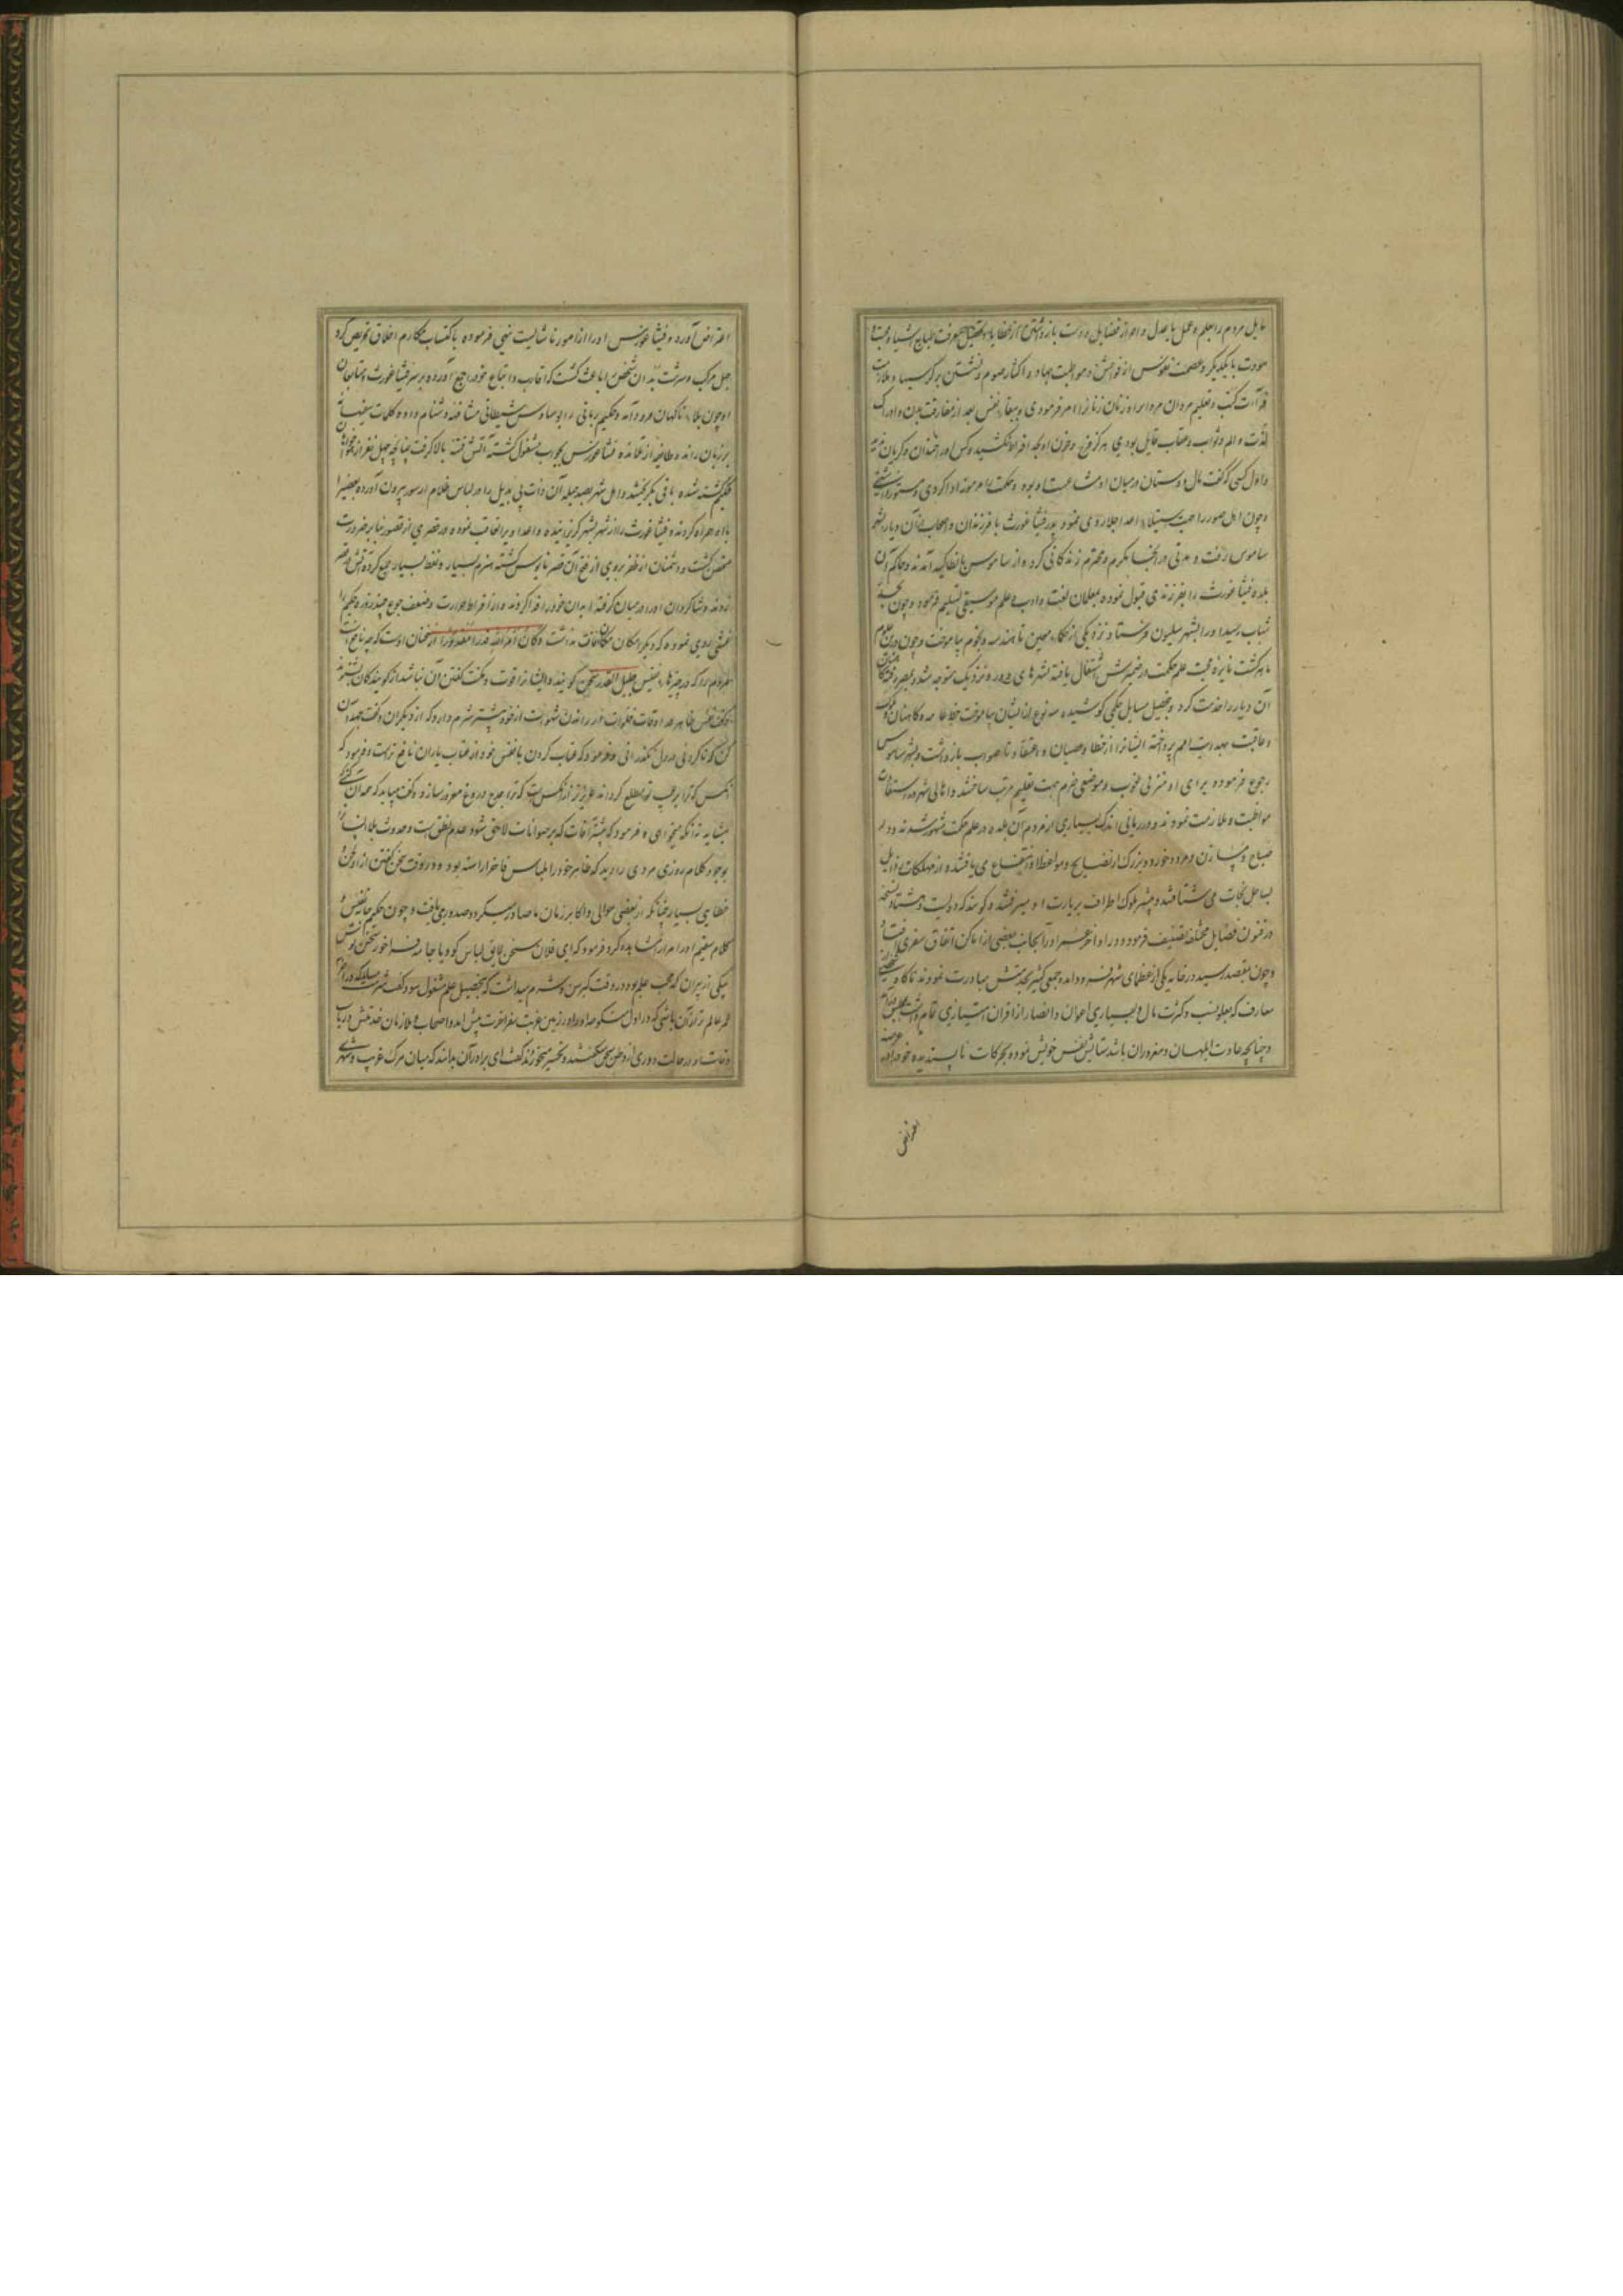 مایل مردم را بعلم و عمل با عدل و احراز فضایل دوست بازداشتن از خطایا و تفتیش معرفت طبایع اشیا و محبت و
مودت با یکدیگر و عصمت نفوس از فواحش و مواظبت جهاد و اکثار صوم و نشستن بر کرسیها و ملازمت
قرآءت کتب و تعلیم مردان مردانرا و زنان زنانرا امر فرمودی و ببقاء نفس بعد از مفارقت بدن و ادراک
لذت و الم و ثواب و عقاب قایل بودی هرگز فرح و حزن او بحد افراط نکشید و کس او را خندان و گریان ندید
و اول کسی که گفت مال دوستان درمیان او مشاعست او بود و حکمت را مرموز ادا کردی و مستور داشتی
و چون اهل صور را جهت استیلاء اعدا جلا روی نمود پدر فیثاغورث با فرزندان و اصحاب از آن دیار بشهر
ساموس رفت و مدتی در آنجا مکرم و محترم زندگانی کرده از ساموس بانطاکیه آمدند و حاکم آن
بلده فیثاغورث را بفرزندی قبول نموده بمعلمان لغت و ادب و علم موسیقی تسلیم فرمود و چون بحد
شباب رسید او را بشهر میلیون فرستاد نزد یکی از حکما مهین تا هندسه و نجوم بیاموخت و چون درین علوم
ماهر گشت نایره محبت علم حکمت در ضمیرش اشتعال یافته بشهرهای دور و نزدیک متوجه شد و بمصر رفته
آن دیار را خدمت کرد و بتحصیل مسایل حکمی کوشیده سه نوع از ایشان بیاموخت خط عامه و کاهنان و ملوک
و عاقبت بهدایت امم پرداخته ایشانرا از خطا و عصیان و اعتقاد ناصواب بازداشت و بشهر ساموس
رجوع فرموده برای او منزلی خوب و موضعی خرم جهت تعلیم مرتب ساختند و اهالی شهر در استفادت
مواظبت و ملازمت نمودند و در زمانی اندک بسیاری از مردم آن بلده در علم حکمت مشهور شدند و در
صباح و مسا زن و مرد و خورد و بزرگ از نصایح و مواعظ او انتفاع می یافتند و از مهلکات رذایل
بساحل نجات می شتافتند و بیشتر ملوک اطراف بزیارت او میرفتند و گویند که دویست و هشتاد نسخه
در فنون فضایل مختلفه تصنیف فرمود و در اواخر عمر او را بجانب بعضی از اماکن اتفاق سفری افتاد
و چون بمقصد رسید در خانه یکی از عظمای شهر فرود آمد و جمعی کثیر بخدمتش مبادرت نمودند ناگاه شخصی از
معارف که بعلو نسب و کثرت مال و بسیاری اعوان و انصار از اقران امتیازی تمام داشت
و چنانچه عادت ابلهان و مغروران باشد ستایش نفس خویش نموده بحرکات ناپسندیده خود را در عرصه
اعتراض
اعتراض آورد و فیثاغورس او را از امور ناشایست نهی فرموده باکتساب مکارم اخلاق تحریص کرد
جهل مرکب و سرشت بد آن شخص را باعث گشت که اقارب و اتباع خود را جمع آورده بر سر فیثاغورث و متابعان
او چون بلاء ناگهان فرود آمد و حکیم ربانی را بوساوس شیطانی مشافهة دشنام داده کلمات سفیهانه
بر زبان راند و طایفه از تلامذه فیثاغورس بجواب مشغول گشته آتش فتنه بالا گرفت چنانچه چهل نفر از
حکیم کشته شده باقی بگریختند و اهل شهر بصد حیله آن ذات بی بدیل را در لباس ظلام از سور بیرون آورده بعضی را
با او همراه کردند و فیثاغورث را از شهر بشهر گریزانیده و اعدا ویرا تعاقب نموده در قصری از قصور بنا بر ضرورت
متحصن گشت و دشمنان از ظفر بروی از فتح آن قصر مایوس گشته هیزم بسیار و نفط بسیار جمع کرده آتش در قصر
زدند و شاگردان او را درمیان گرفته ابدان خود را فدا کردند و از افراط حرارت و ضعف جوع چند روزه حکیم را
غشی روی نموده که دیگر امکان افاقت نداشت و کان امر الله قدرا مقدورا از سخنان اوست که چه نافع است
مردم را که در چیزهاء نفیس جلیل القدر سخن گویند و ایشانرا قوت و مکنت گفتن آن نباشد از گویندگان بشنوند
و گفت نفس طاهر را اوقات خلوات در راندن شهوات از خود بیشتر شرم دارد که از دیگران و گفت جهد آن
کن که ناکردنی در دل نگذرانی و فرمود که عتاب کردن با نفس خود از عتاب یاران نافع ترست و فرمود که
آنکس که ترا بر عیب تو مطلع گرداند عزیزتر از آنکس است که ترا بمدح دروغ مغرور سازد و گفت میباید که همدان کسی
بیشاید ترا که میخواهی و فرمود که بیشتر آفات که بر حیوانات لاحق شود عدم نطق است و حدوث بلا انسانرا
بوجود کلام روزی مردی را دید که ظاهر خود را بلباس فاخر آراسته بود و در وقت سخن گفتن از او لحن و
خطاهای بسیار چنانکه از بعضی موالی و اکابر زمان ما صادر میگردد صدور می یافت و چون حکیم جامه نفیس و
کلام سقیم او را مرارا مشاهده کرد فرمود که ای فلان سخن لایق لباس گو و یا جامه فراخور سخن پوش
بیکی از پیران که محب علم بود و در وقت کبر سن شرم میداشت که بتحصیل علم مشغول شود گفت شرم مدار که در آخر
عمر عالم تر از آن باشی که در اول منکوحه او را در زمین غربت سفر آخرت پیش آمد و اصحاب و ملازمان خدمتش در باب
وفات او در حالت دوری از وطن سخن میگفتند و تحسر میخوردند گفت ای برادران بدانند که میان مرگ غریب و شهری